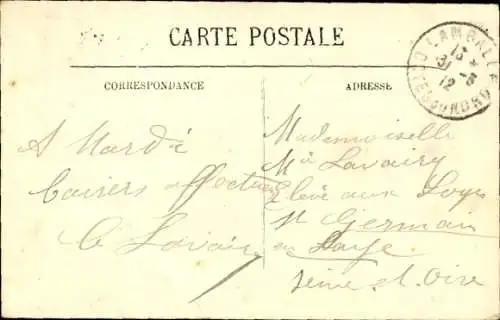 CARTE POSTALE
CORRESPONDANCE
ADRESSE
LAMBALLE
COTES DU NORD
15
31 - 8
12
A Mardi
Baisers affectueux
Mademoiselle
Lavairy
Elève aux Loges
St Germain
en Laye
Seine et Oise